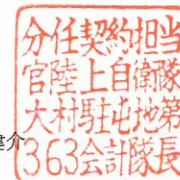 分任契約担当
官陸上自衛隊
大村駐屯地第
363会計隊長
介